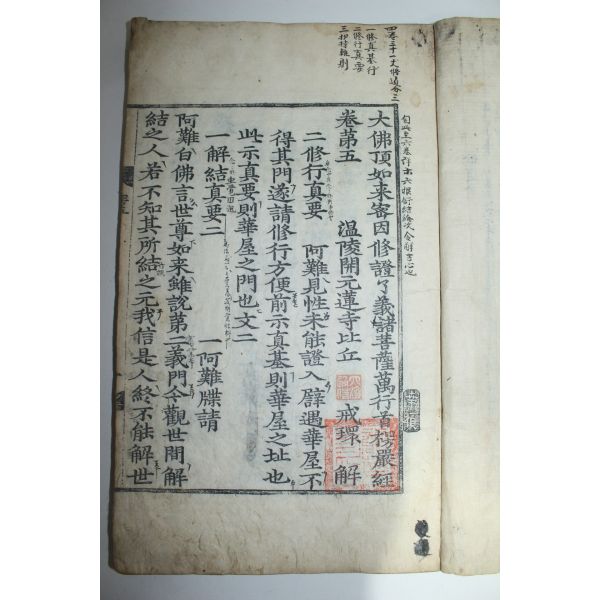 四卷三十一丈修道分三
一修真基行
二修行真要
大佛頂如來密因修證了義諸菩薩萬行首楞嚴經
卷第五 温陵開元蓮寺比丘 戒環 解
二修行真要 阿難見性未能證入譬遇華屋不
得其門遂請修行方便前示真基則華屋之址也
此示真要則華屋之門也文二
一解結真要二 一阿難牒請
阿難白佛言世尊如來雖說第二義門今觀世間解
結之人若不知其所結之元我信是人終不能解世